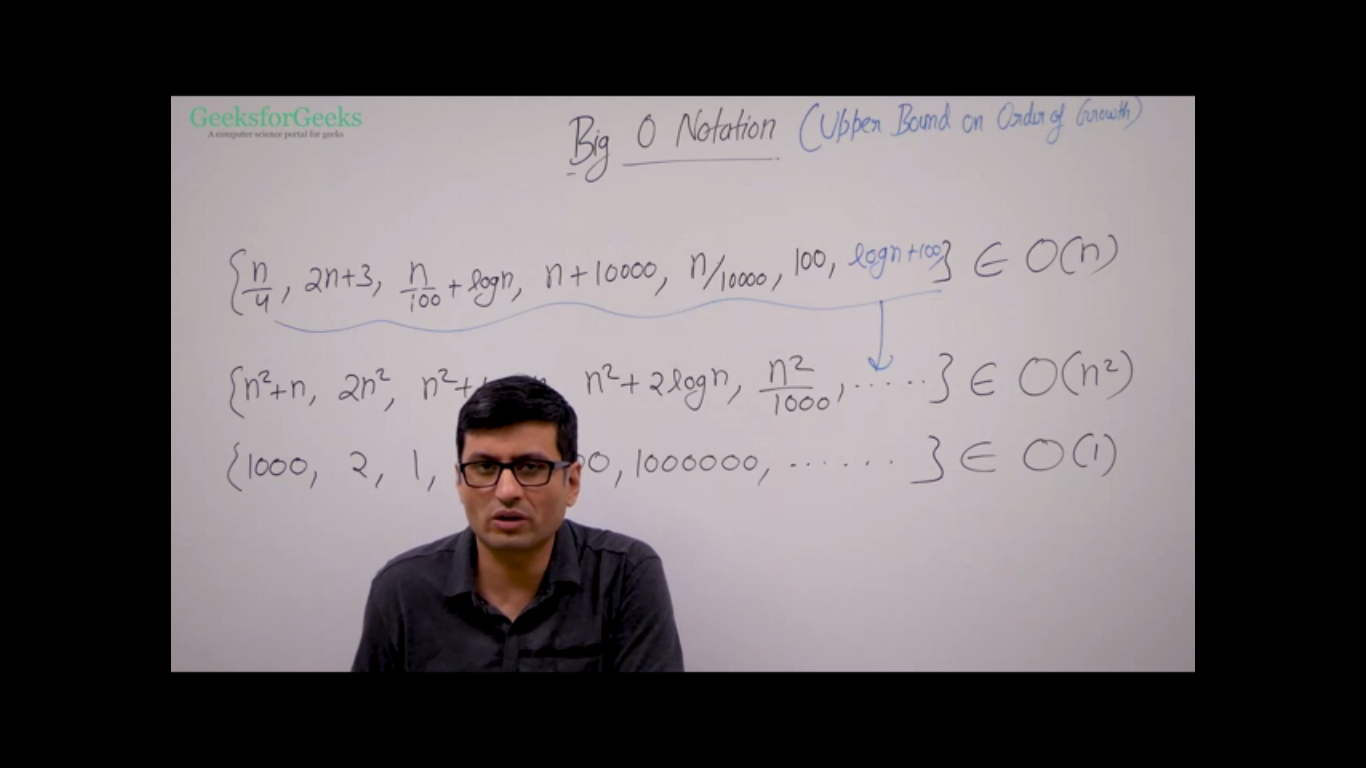 GeeksforGeeks
A computer science portal for geeks
Big O Notation (Upper Bound on Order of Growth)
{n/4, 2n+3, n/100 + logn, n+10000, n/10000, 100, logn+100} ∈ O(n)
{n²+n, 2n², n²+ n²+2logn, n²/1000, ......} ∈ O(n²)
{1000, 2, 1, 1000000, .......} ∈ O(1)